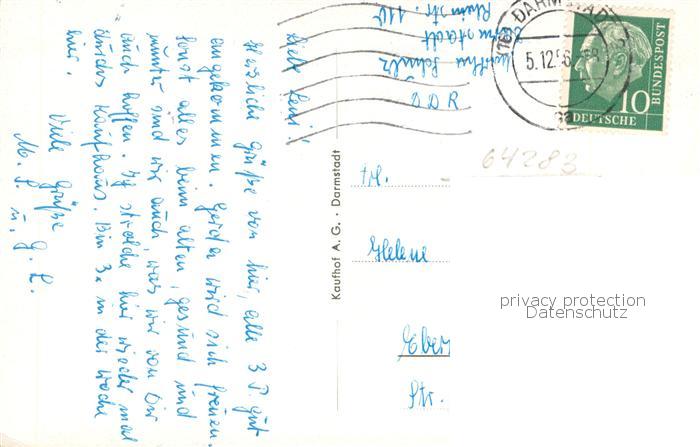 Liebe Leni!
Herzliche Grüße von hier, alle 3 P. gut
angekommen. Leider wird sich
sonst alles beim alten, gesund und
munter sind wir auch, was wir von Dir
auch hoffen. Ig strolche hier wieder mal
durchs Kaufhaus. Bin 3x in der Woche
hier.
Viele Grüße
M. L.
u. G. L.
Darmstadt
Rheinstr. 110
DDR
Kaufhof A.G. · Darmstadt
(16) DARMSTADT
5.12.56
BUNDESPOST
10
DEUTSCHE
64283
Helene
Eber
Str.
privacy protection
Datenschutz